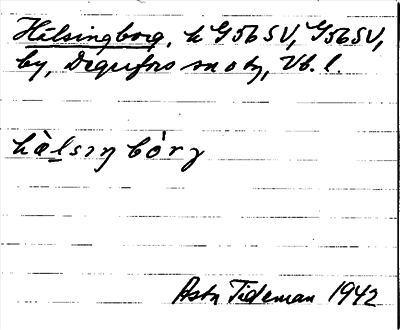 Hälsingborg, h G56 SV, G56 SV,
by, Degerfors sn o by, Vb. l.
hàlsıŋ bórg
Astr Tideman 1942